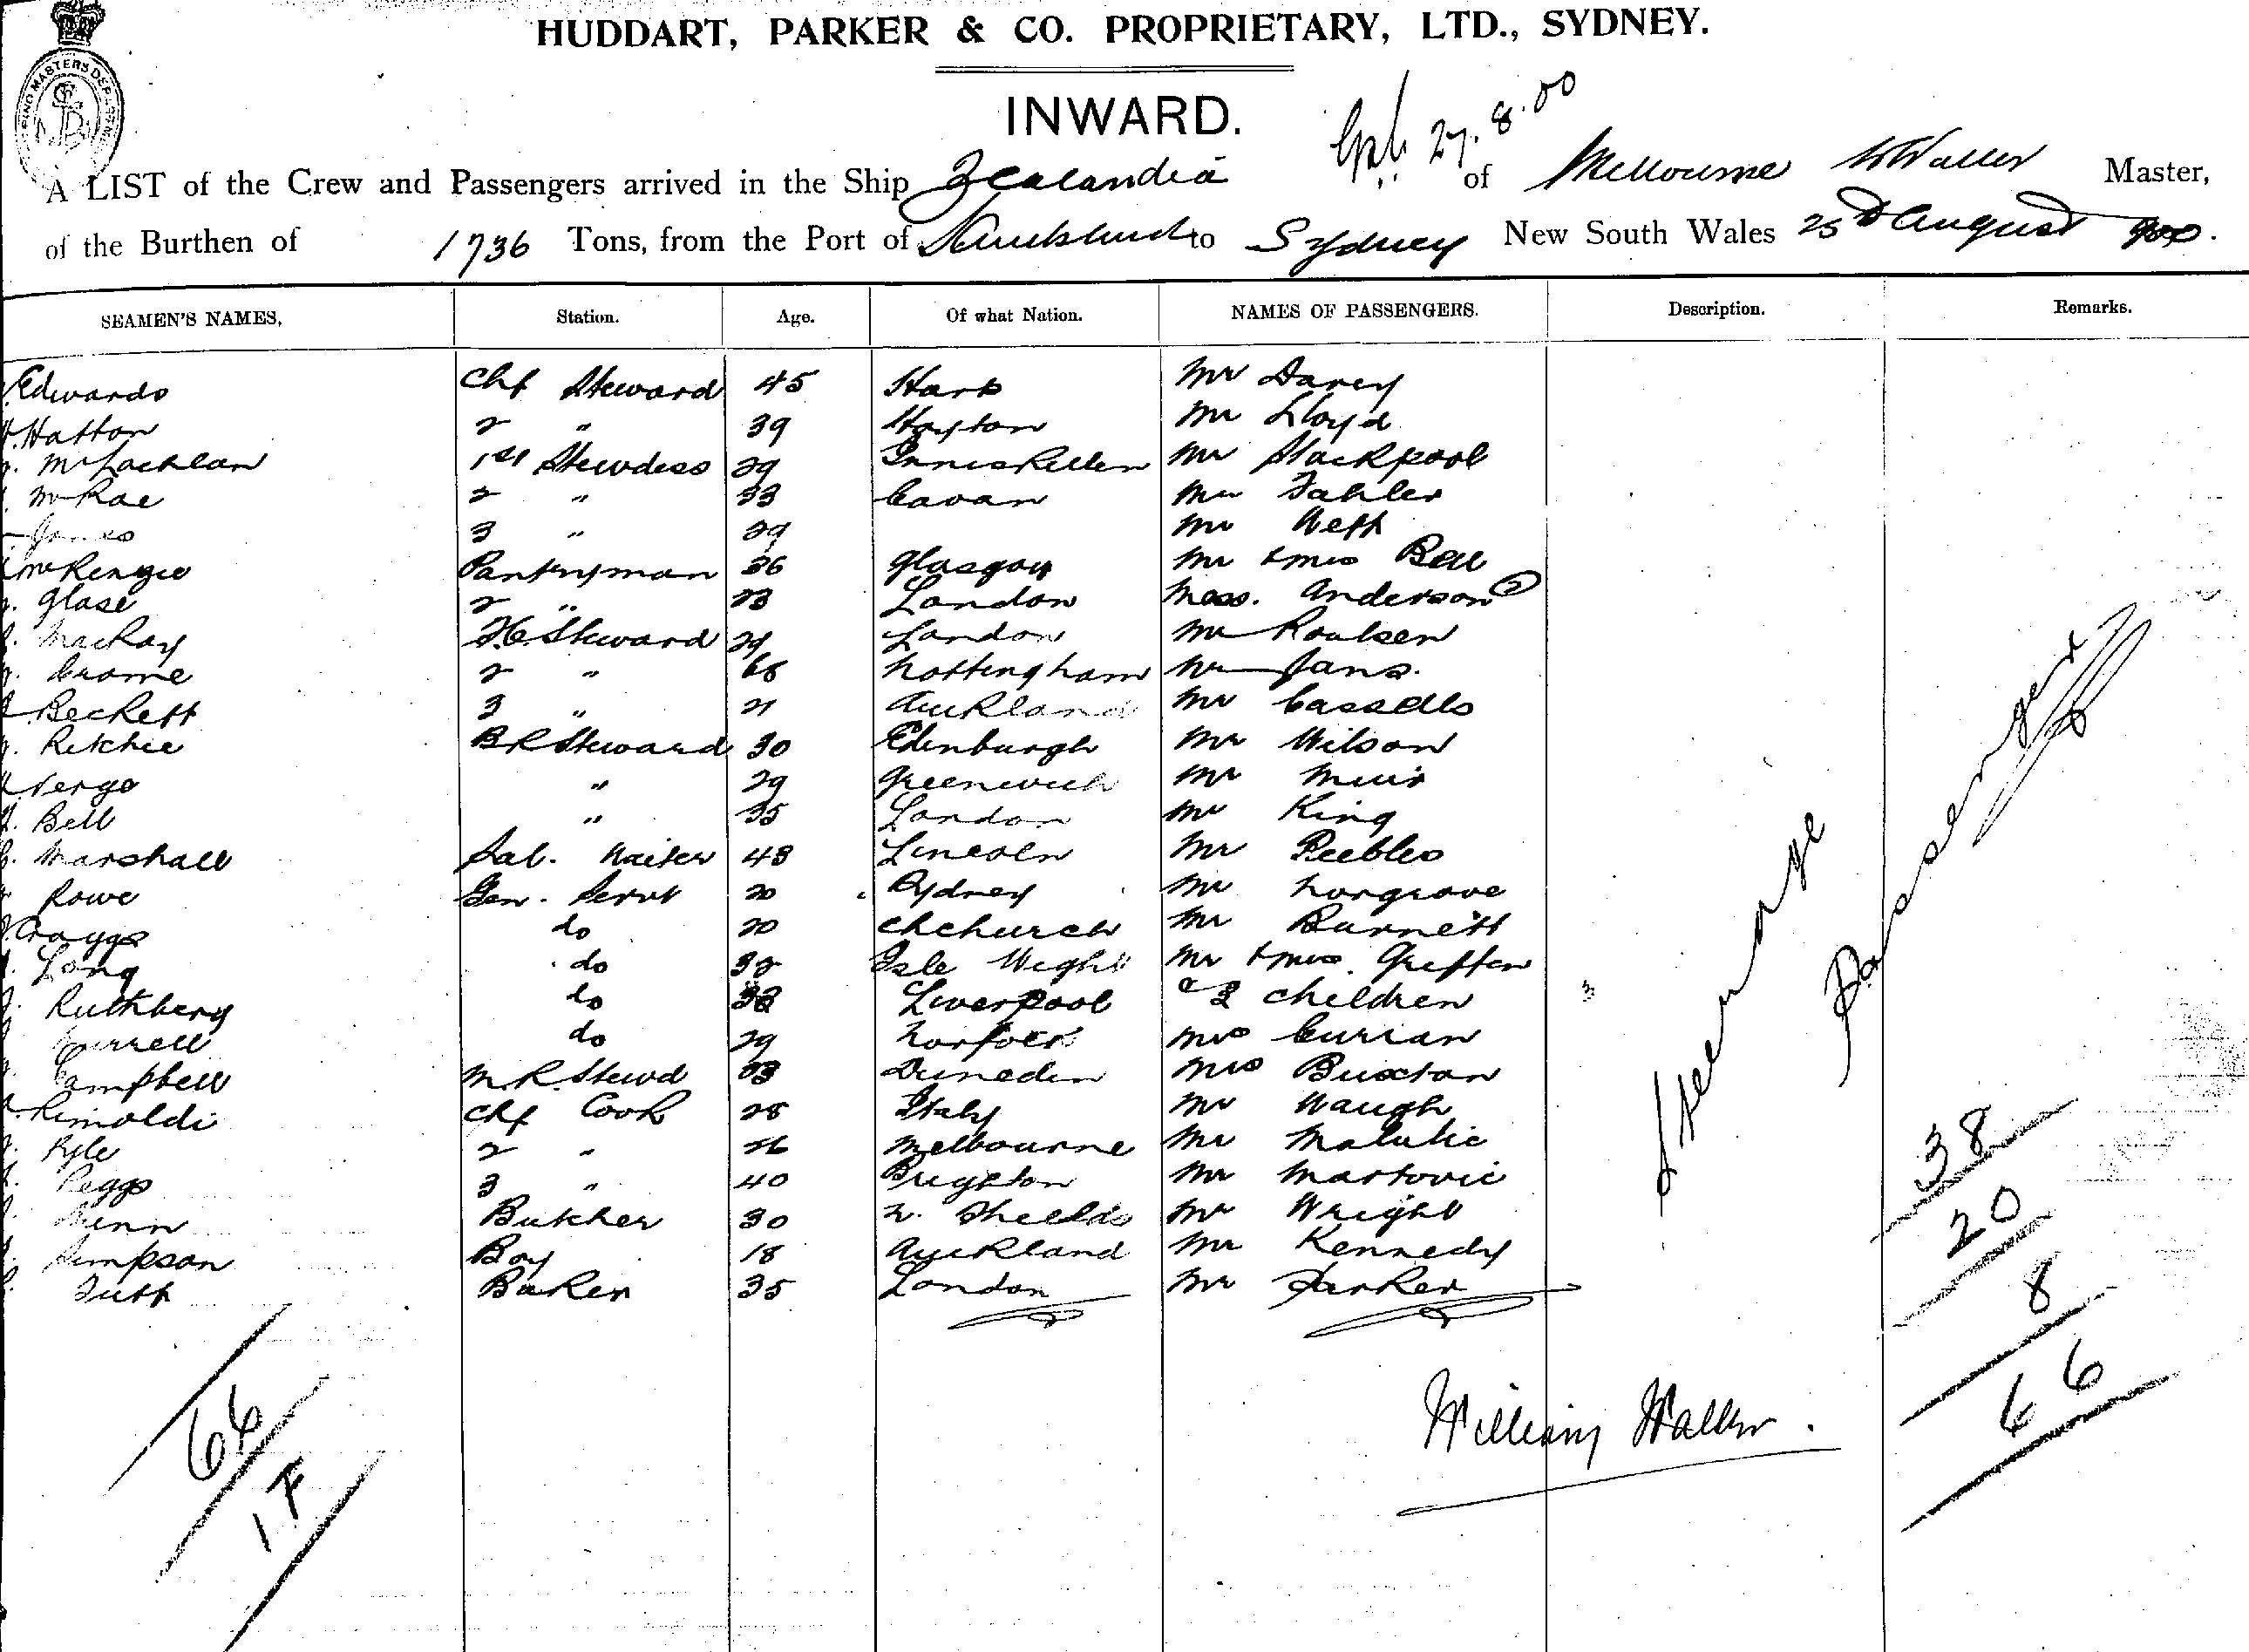 HUDDART, PARKER & CO. PROPRIETARY, LTD., SYDNEY.
INWARD.
27.8.00
A LIST of the Crew and Passengers arrived in the Ship Zealandia of Melbourne W Waller Master,
of the Burthen of 1736 Tons, from the Port of Auckland to Sydney New South Wales 25th August 1900.
SEAMEN'S NAMES, Station. Age. Of what Nation. NAMES OF PASSENGERS. Description. Remarks.
Edwards Chf Steward 45 Mr Darcy
Hatton 2 " 39 Hoyton Mr Lloyd
McLachlan 1st Stewdess 29 Inniskillen Mr Stackpool
McRae 2 " 33 Cavan Mr Fahler
Jones 3 " 29 Mr Neff
McKenzie Pantryman 36 Glasgow Mr & Mrs Bell
Glase 2 " 23 London Mess. Anderson 2
MacKay F.C. Steward 29 London Mr Poulsen
Crome 2 " 68 Nottingham Mr Jans.
Beckett 3 " 21 Auckland Mr Cassells
Ritchie B R Steward 30 Edinburgh Mr Wilson
Vergo " 29 Greenwich Mr Muir
Bell " 35 London Mr King
Marshall Sal. Waiter 48 Lincoln Mr Peebles
Rowe Gen. Servt 20 Sydney Mr Norgrove
Craggs do 20 Chchurch Mr Barnett
Long do 32 Isle Wight Mr & Mrs. Griffen
Ruthberg do 32 Liverpool & 2 children
do 29 Norfolk Mrs Curran
Campbell M.R. Stewd 23 Dunedin Mrs Buxton
Rimoldi Chf Cook 28 Italy Mr Waugh
Kyle 2 " 26 Melbourne Mr Malutic
Peggs 3 " 40 Brighton Mr Martovic
Butcher 30 N. Shields Mr Wright
Simpson Boy 18 Auckland Mr Kennedy
Tutt Baker 35 London Mr Parker
Steerage Passengers
38
20
8
66
William Waller.
66
1F